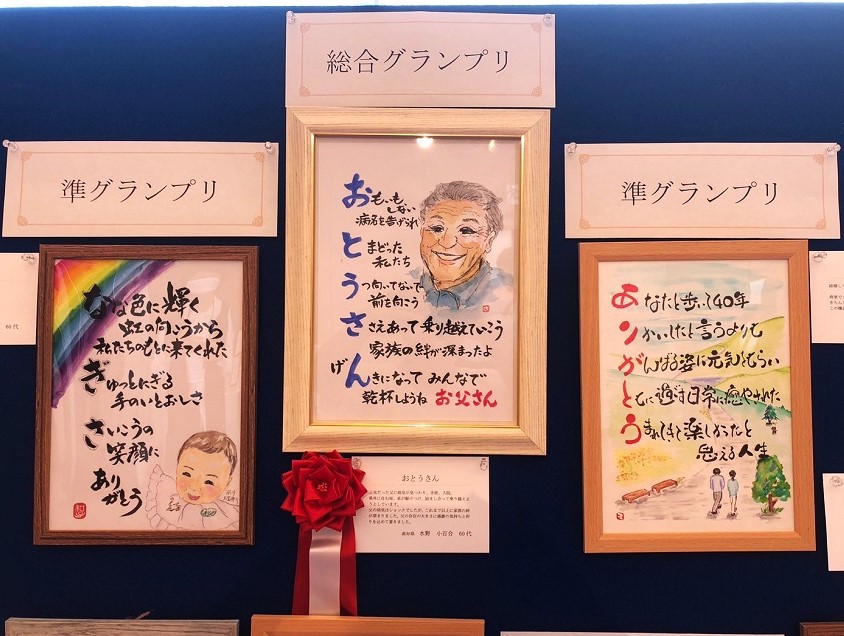 総合グランプリ
準グランプリ
準グランプリ
なな色に輝く
虹の向こうから
私たちのもとに来てくれた
ぎゅっとにぎる
手のいとおしさ
さいこうの
笑顔に
ありがとう
おもいもしない
病名を告げられ
とまどった
私たち
うつ向いてないで
前を向こう
ささえあって乗り越えていこう
家族の絆が深まったよ
げんきになってみんなで
乾杯しようね お父さん
あなたと歩いて40年
りかいしたと言うよりも
がんばる姿に元気をもらい
ともに過ごす日常に癒やされた
うまれてきて楽しかったと
思える人生
おとうさん
水野 小百合 60代
60代